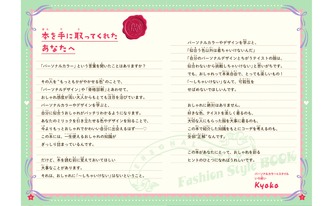 本を手に取ってくれた
あなたへ
「パーソナルカラー」という言葉を聞いたことはありますか？
その人を“もっともかがやかせる色”のことで、
「パーソナルデザイン」や「骨格診断」とあわせて、
おしゃれ感度が高い大人からもとても注目を浴びています。
パーソナルカラーやデザインを学ぶと、
自分に似合うおしゃれがバッチリわかるようになります。
あなたのミリョクを引き立たせる色やデザインを知ることで、
今よりもっとおしゃれでかわいい自分に出会えるはず……♡
この本には、一生使えるおしゃれの知識が
ぎっしり詰まっているんです。
だけど、本を読む前に覚えておいてほしい
大事なことがあります。
それは、おしゃれに「〜しちゃいけない」はないということ。
パーソナルカラーやデザインを学ぶと、
「似合う色以外は着ちゃいけないんだ」
「自分のパーソナルデザインとちがうテイストの服は、
似合わないから挑戦しちゃいけない」と思いがちです。
でも、おしゃれって本来自由で、とっても楽しいもの！
「〜しちゃいけない」なんて、可能性を
せばめないでほしいんです。
おしゃれに絶対はありません。
好きな色、テイストを楽しく着るのも、
大切な人にもらった服を大事に着るのも、
この本で紹介した知識をもとにコーデを考えるのも、
全部“正解”なんです。
この本があなたにとって、おしゃれを彩る
ヒントのひとつになればうれしいです。
Kyoko
Fashion Style BOOK